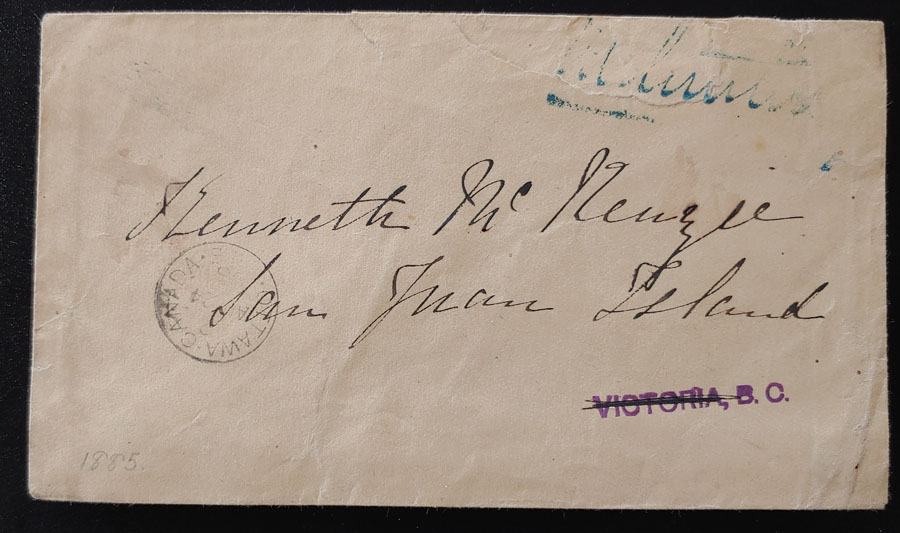 Kenneth Mc Kenzie
San Juan Island
VICTORIA, B. C.
OTTAWA·CANADA·
1885.